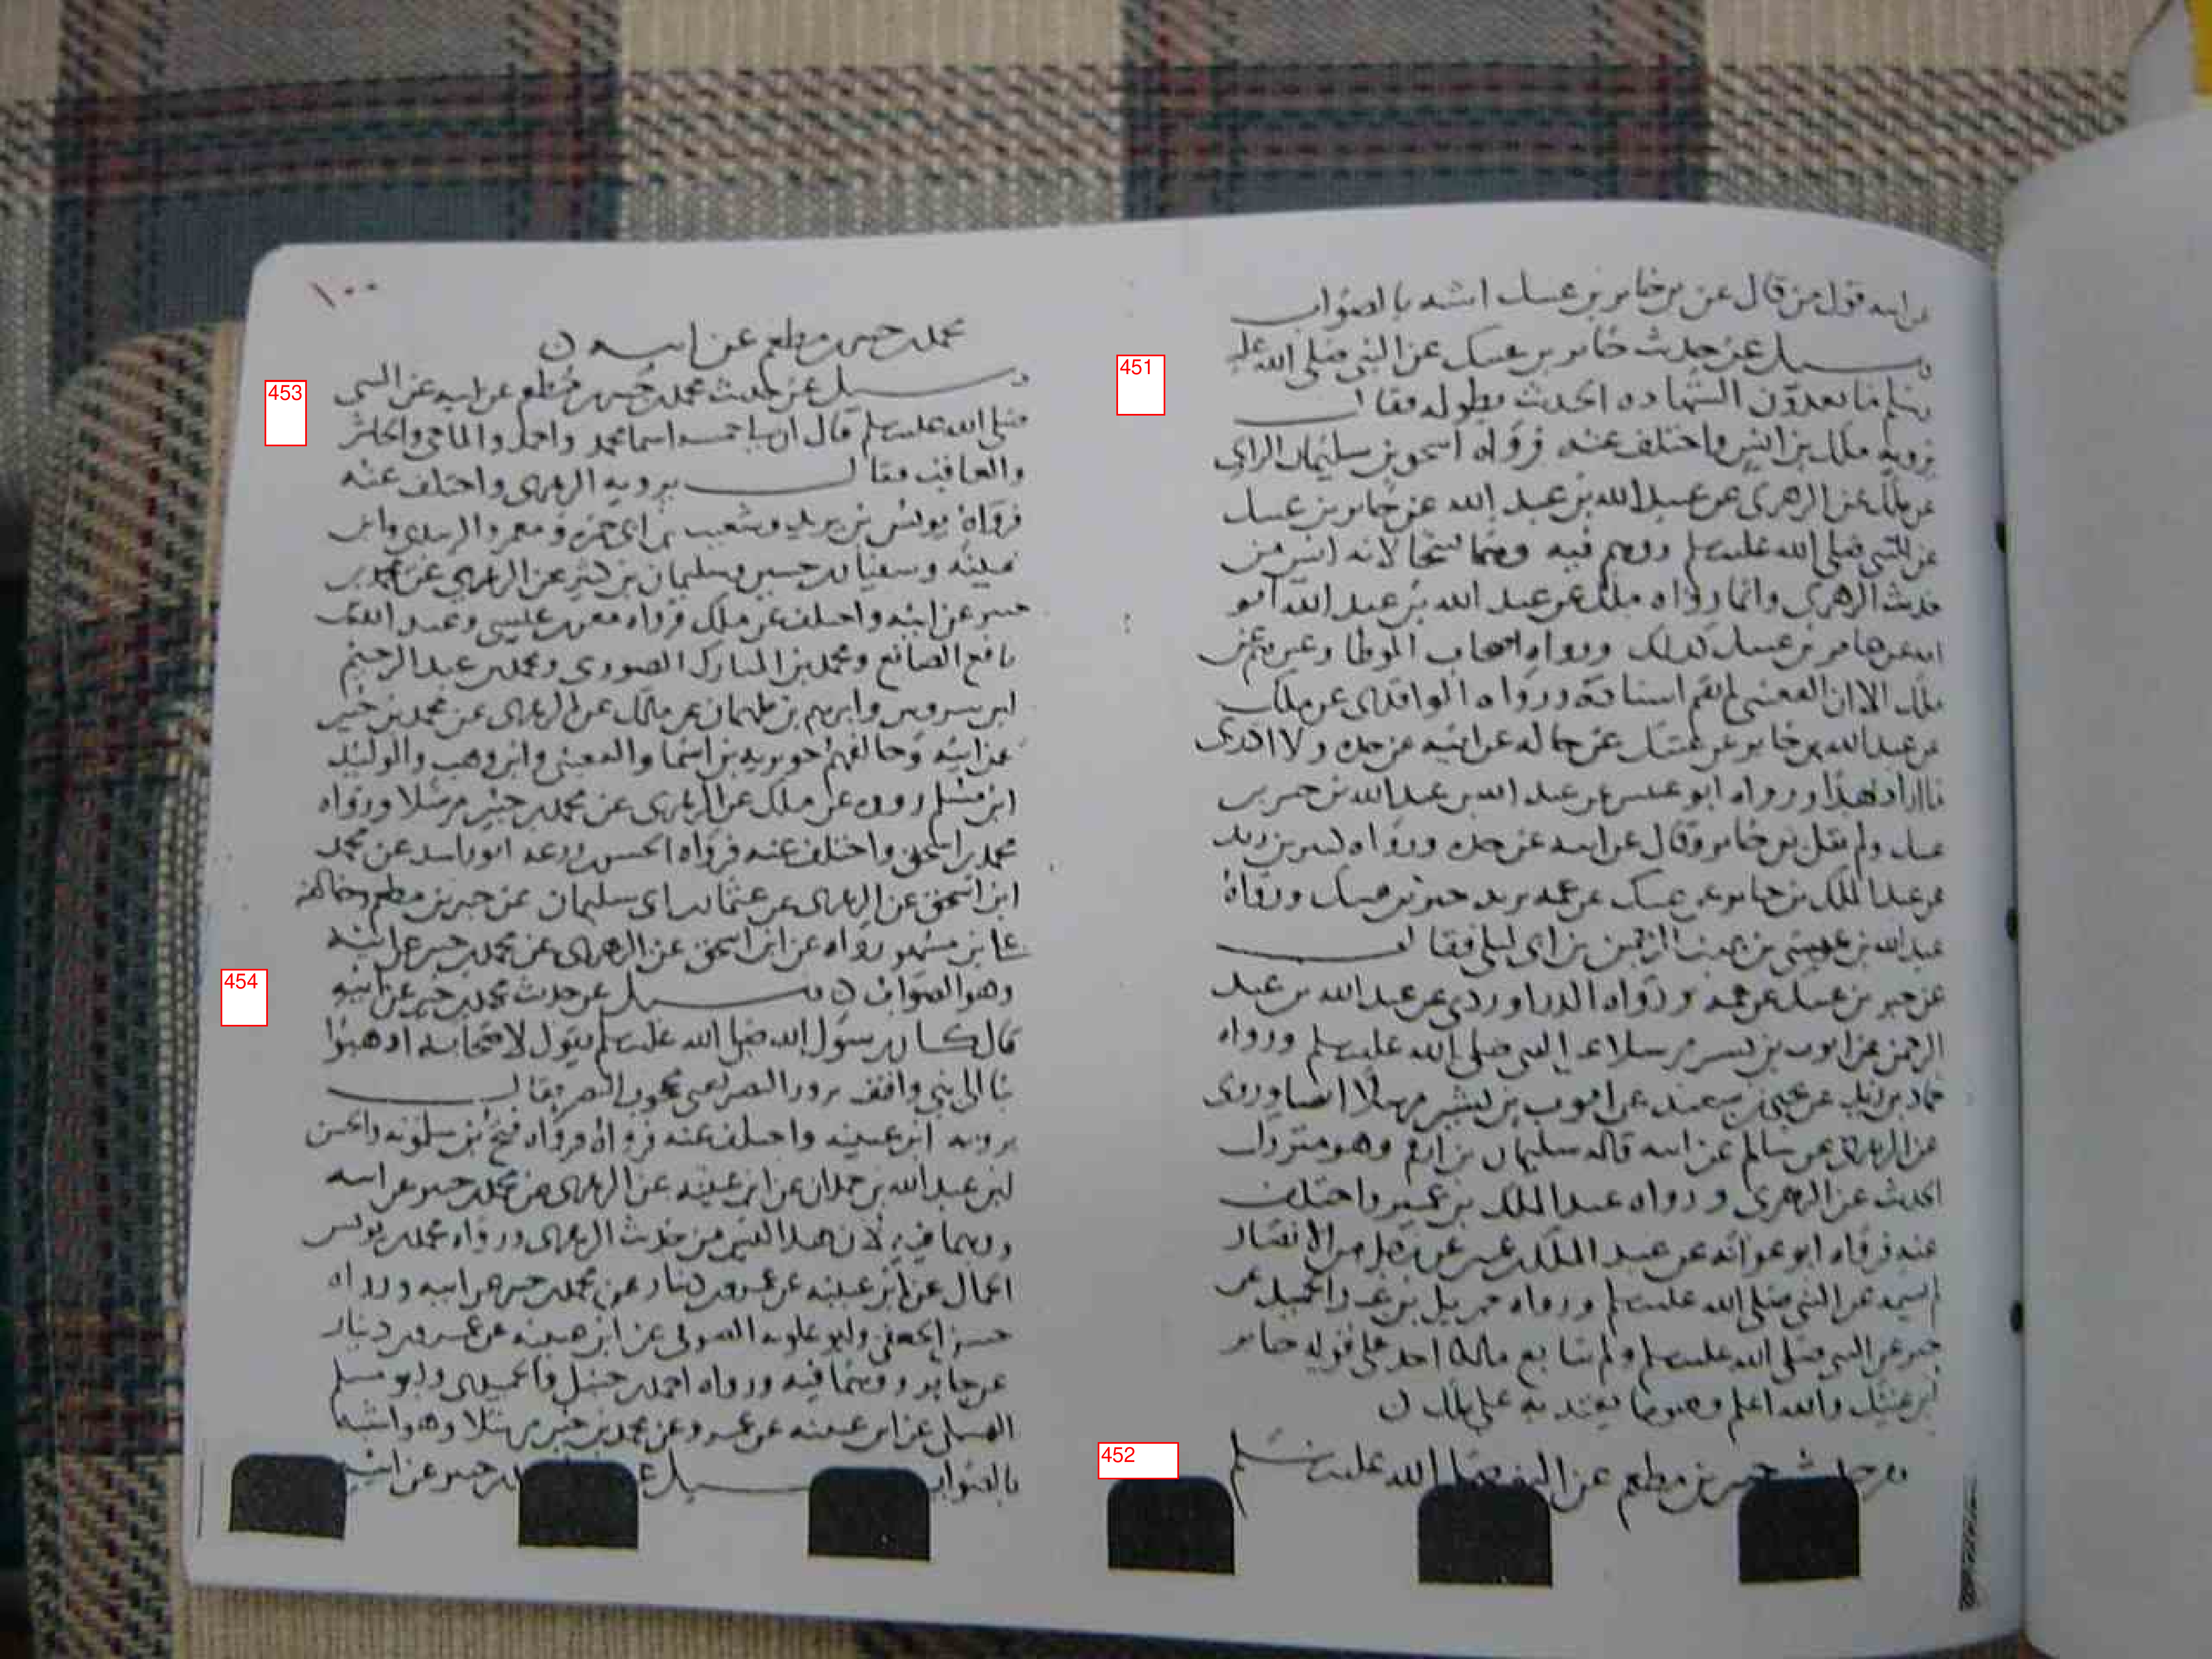 عن ابيه قول من قال عن بن جابر بن عتيك اشبه بالصواب
وسيل عن حديث جابر بن عتيك عن النبي صلى الله عليه
وسلم ما تعدون الشهاده الحديث بطوله فقال
يرويه ملك بن انس واختلف عنه فرواه اسحق بن سليمان الرازي
عن ملك عن الزهري عن عبد الله بن عبد الله عن جابر بن عتيك
عن النبي صلى الله عليه وسلم ووهم فيه وهما قبيحا لانه ليس من
حديث الزهري وانما رواه ملك عن عبد الله بن عبد الله ابو
امه عن جابر بن عتيك كذلك ورواه اصحاب الموطا وغيرهم عن
ملك الا ان القعنبي لم يقم اسناده ورواه الواقدي عن ملك
عن عبد الله بن جابر عن عتيك عن خاله عن ابيه عن جده ولا ادري
ما اراد بهذا ورواه ابو عميس عن عبد الله بن عبد الله بن جبر بن
عتيك ولم يقل بن جابر وقال عن ابيه عن جده ورواه
عن عبد الملك بن جابر بن عتيك عن عمه يريد جبر بن عتيك ورواه
عبد الله بن عيسى بن عبد الرحمن بن ابي ليلى فقال
عن جبر بن عتيك عن عمه ورواه الدراوردي عن عبد الله بن عبد
الرحمن عن ايوب بن بشير مرسلا عن النبي صلى الله عليه وسلم ورواه
حماد بن زيد عن يحيى بن سعيد عن ايوب بن بشير مرسلا ايضا وروى
عن الزهري عن سالم عن ابيه قاله سليمان بن ارقم وهو متروك
الحديث عن الزهري ورواه عبد الملك بن عمير واختلف
عنه فرواه ابو عوانه عن عبد الملك بن عمير عن رجل من الانصار
لم يسمه عن النبي صلى الله عليه وسلم ورواه
جبر عن النبي صلى الله عليه وسلم ولم يتابع مالك احد على قوله جابر
ابن عتيك والله اعلم وهو مما يعتد به على ملك ن
ومن حديث جبير بن مطعم عن النبي صلى الله عليه وسلم
١٠٠
محمد بن جبير بن مطعم عن ابيه ن
وسيل عن حديث محمد بن جبير بن مطعم عن ابيه عن النبي
صلى الله عليه وسلم قال ان لي خمسه اسما محمد واحمد والماحي والحاشر
والعاقب فقال يرويه الزهري واختلف عنه
فرواه يونس بن يزيد وشعيب بن ابي حمزه ومعمر والزبيدي وابن
عيينه وسفيان بن حسين وسليمان بن كثير عن الزهري عن محمد بن
جبير عن ابيه واختلف عن ملك فرواه معن بن عيسى وعبد الله بن
نافع الصائغ ومحمد بن المبارك الصوري ومحمد بن عبد الرحيم
ابن شروس وابرهيم بن طهمان عن مالك عن الزهري عن محمد بن جبير
عن ابيه وخالفهم جويريه بن اسما والقعنبي وابن وهب والوليد
ابن مسلم رووه عن ملك عن الزهري عن محمد بن جبير مرسلا ورواه
محمد بن اسحق واختلف عنه فرواه الحسن بن زرعه ابو راشد عن محمد
ابن اسحق عن الزهري عن عثمان بن ابي سليمان عن جبير بن مطعم وخالفه
علي بن مسهر رواه عن ابن اسحق عن الزهري عن محمد بن جبير عن ابيه
وهو الصواب ن وسيل عن حديث محمد بن جبير عن ابيه
قال كان رسول الله صلى الله عليه وسلم يقول لاصحابه اذهبوا
بنا الى بني واقف نزور البصير يعني محجوب البصر فقال
يرويه ابن عيينه واختلف عنه فرواه فتح بن سلمويه والحسن
ابن عبد الله بن حمدان عن ابن عيينه عن الزهري عن محمد بن جبير عن ابيه
ووهما فيه لان هذا ليس من حديث الزهري ورواه محمد بن يونس
الجمال عن ابن عيينه عن عمرو بن دينار عن محمد بن جبير عن ابيه ورواه
حسين الجعفي وابو علويه الصوفي عن ابن عيينه عن عمرو بن دينار
عن جابر ووهما فيه ورواه احمد بن حنبل والحميدي وابو مسلم
المستملي عن ابن عيينه عن عمرو عن محمد بن جبير مرسلا وهو اشبه
بالصواب وسيل جبير عن ابيه
451
452
453
454